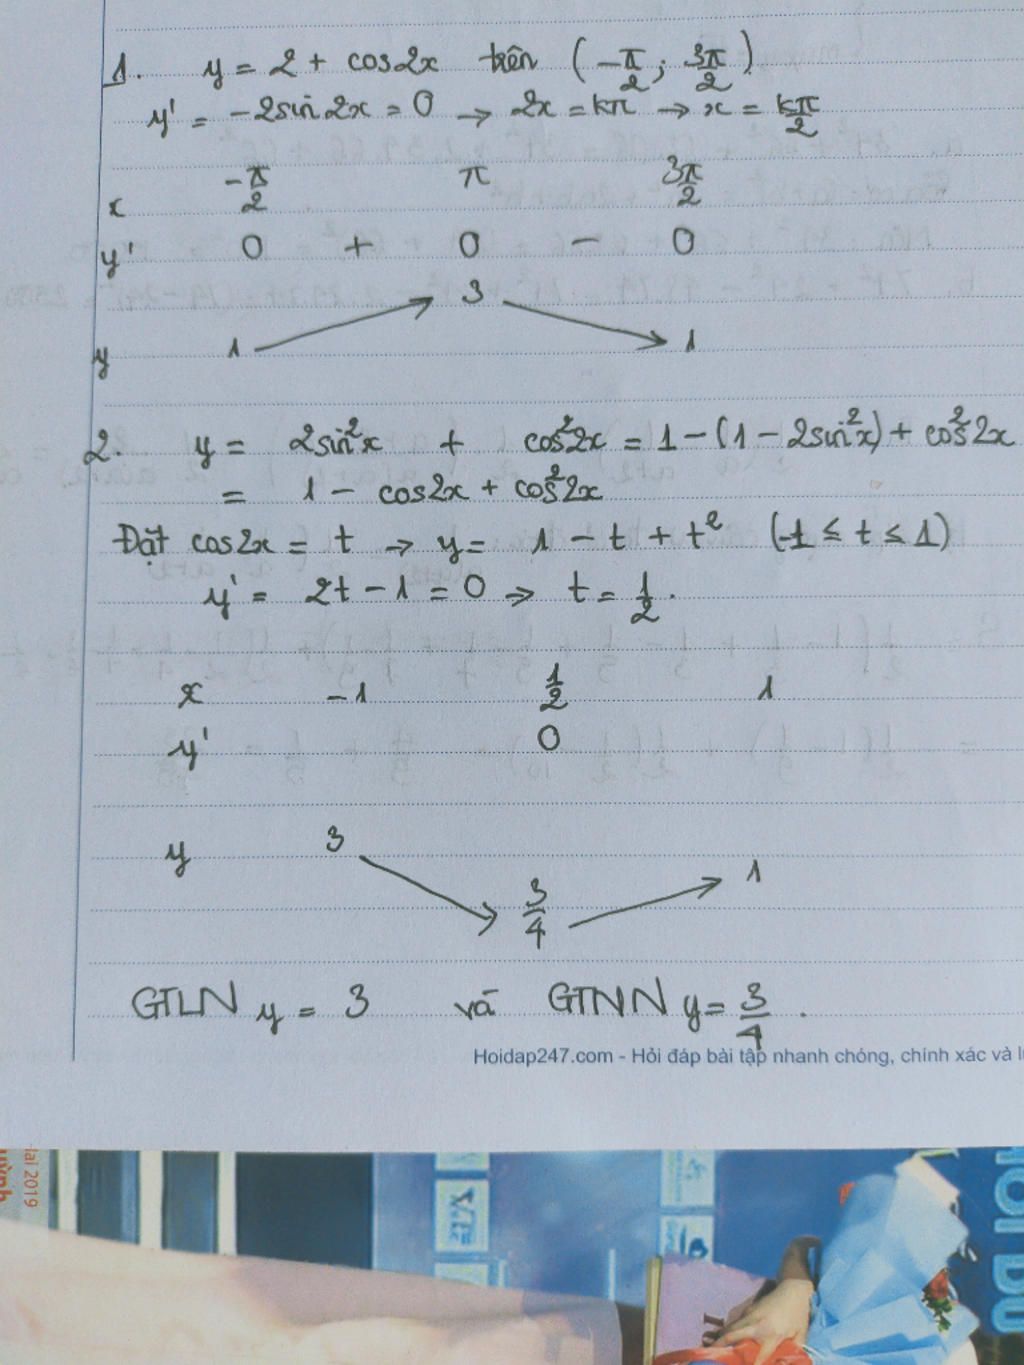 1. y = 2 + cos2x trên (-π/2; 3π/2)
y' = -2sin2x = 0 → 2x = kπ → x = kπ/2
x -π/2 π 3π/2
y' 0 + 0 - 0
3
y 1 1
2. y = 2sin²x + cos²2x = 1 - (1 - 2sin²x) + cos²2x
= 1 - cos2x + cos²2x
Đặt cos2x = t → y = 1 - t + t² (-1 ≤ t ≤ 1)
y' = 2t - 1 = 0 → t = 1/2.
x -1 1/2 1
y' 0
y 3 1
3/4
GTLN y = 3 và GTNN y = 3/4.
Hoidap247.com - Hỏi đáp bài tập nhanh chóng, chính xác và
2019